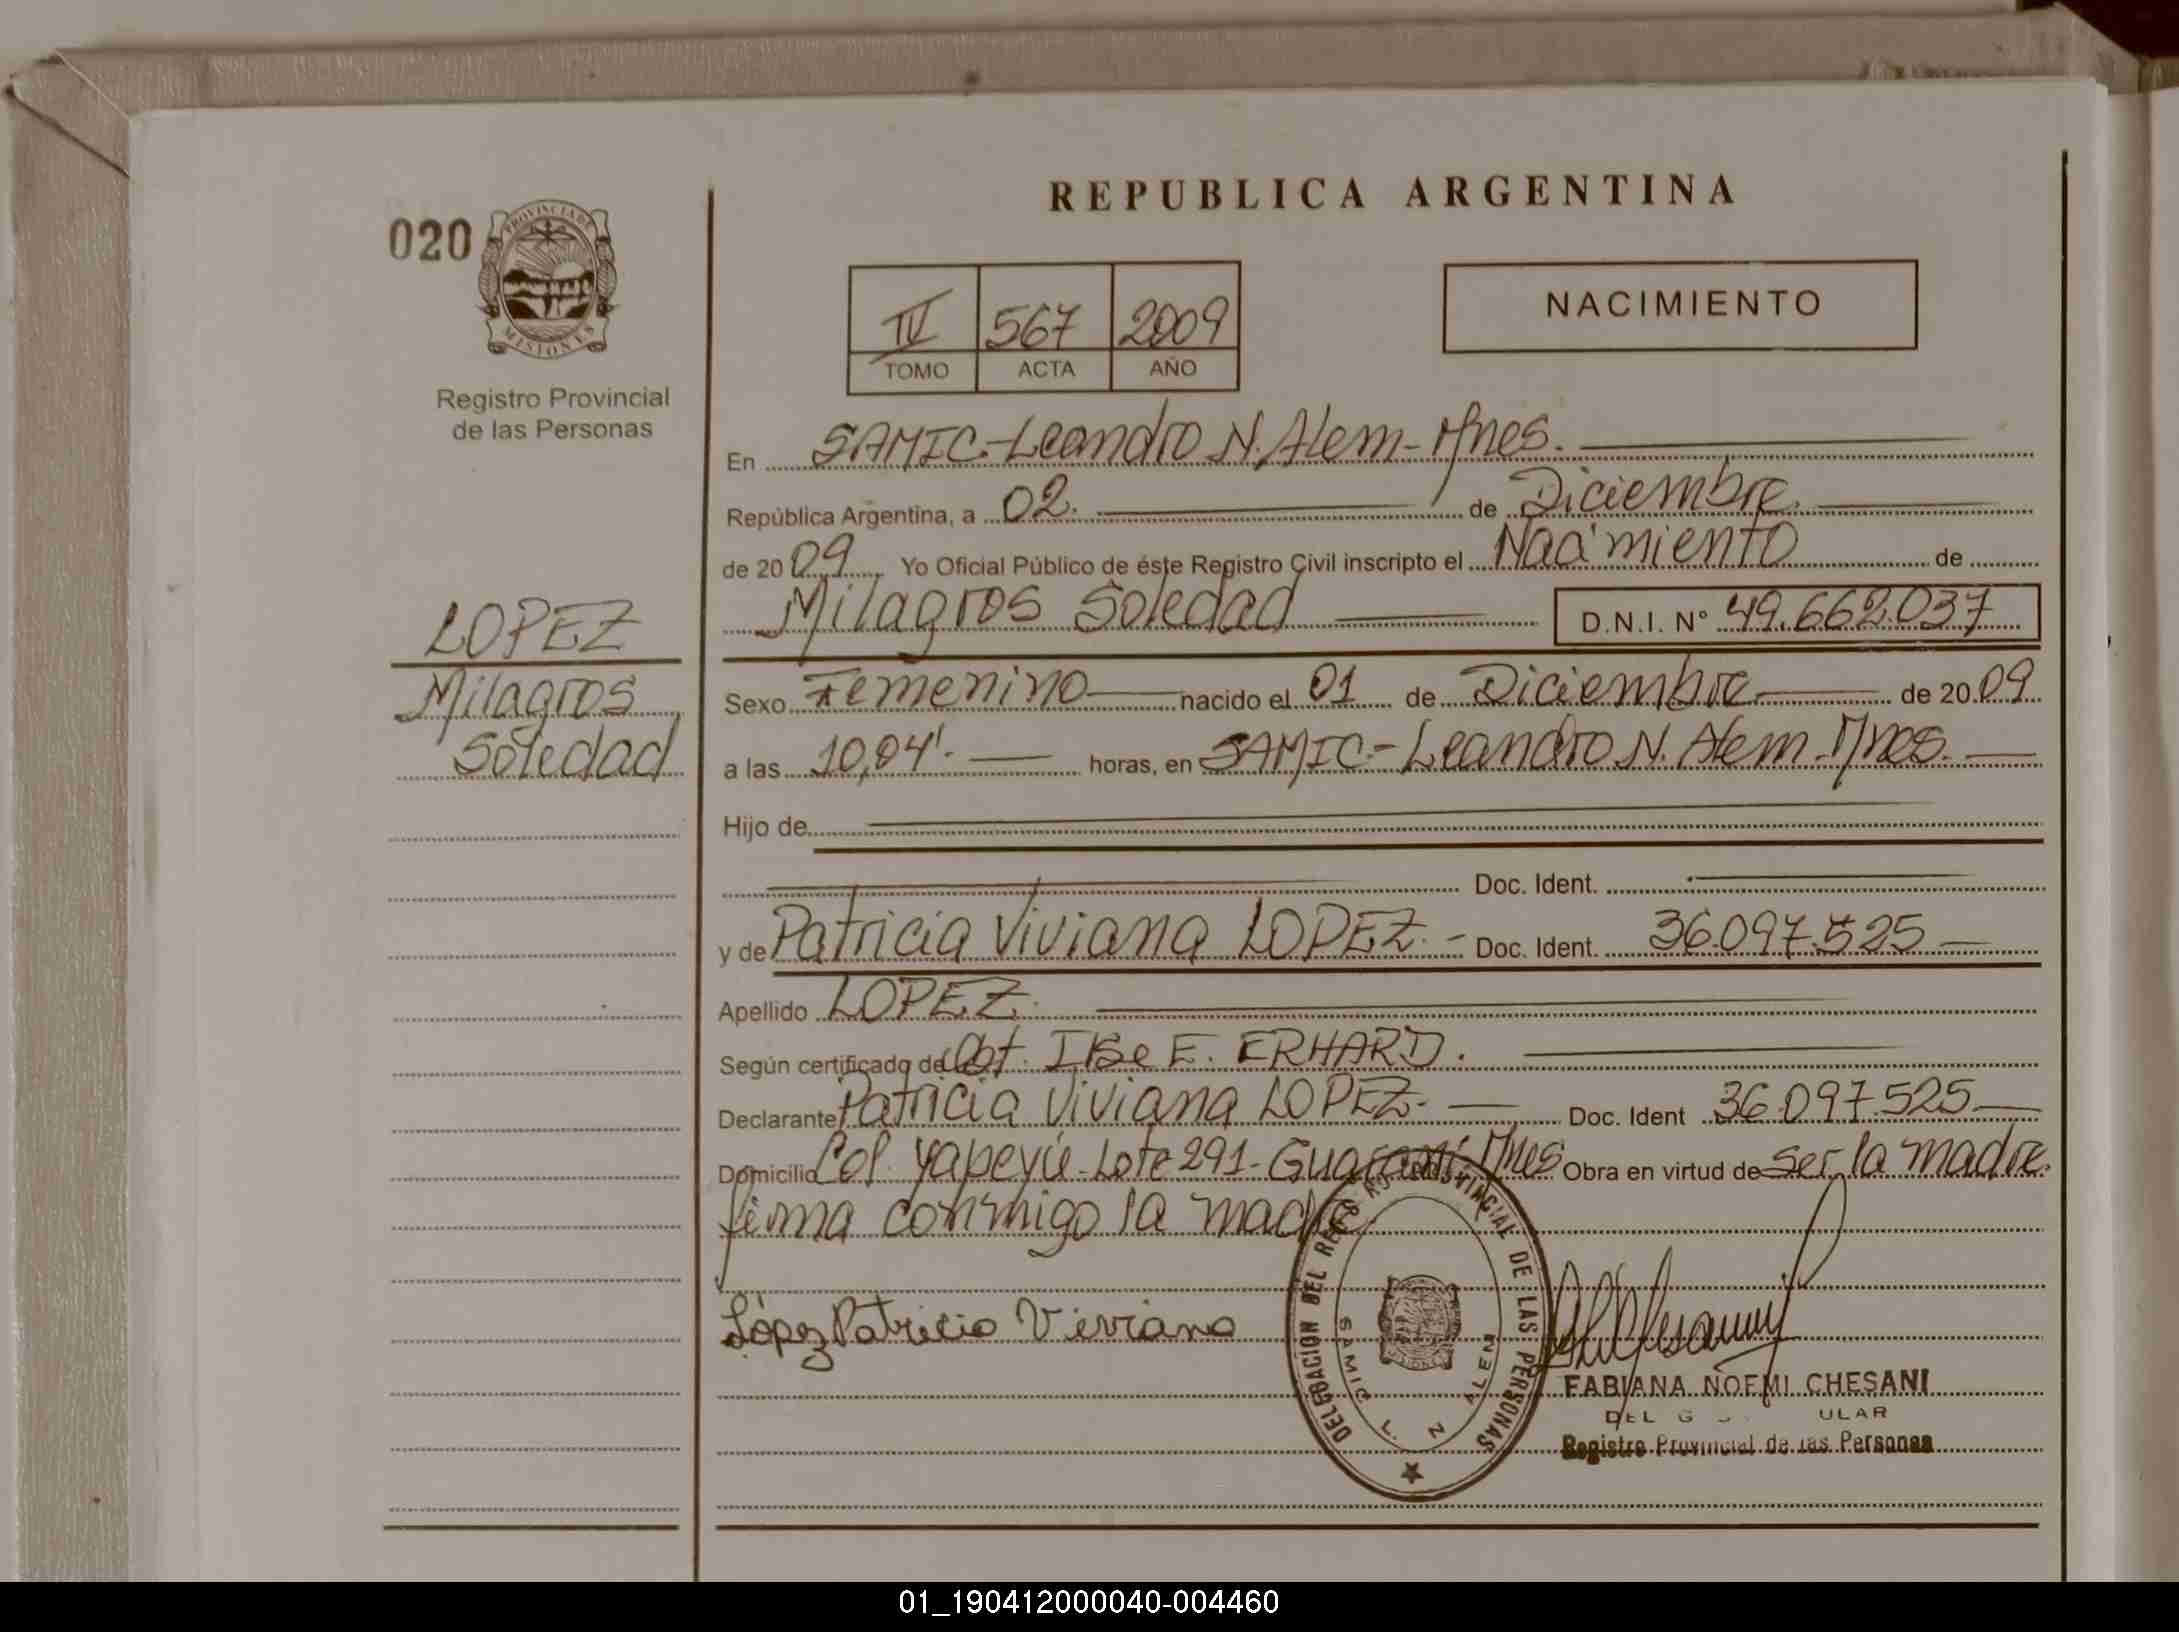 REPUBLICA ARGENTINA
020
PROVINCIA DE
MISIONES
Registro Provincial
de las Personas
IV 567 2009
TOMO ACTA AÑO
NACIMIENTO
En SAMIC.-Leandro N. Alem - Mnes.
República Argentina, a 02. de Diciembre.
de 2009 Yo Oficial Público de éste Registro Civil inscripto el Nacimiento de
Milagros Soledad D.N.I. Nº 49.662.037
LOPEZ
Milagros
Soledad
Sexo Femenino nacido el 01 de Diciembre de 2009
a las 10,04'. horas, en SAMIC.- Leandro N. Alem - Mnes.
Hijo de
Doc. Ident.
y de Patricia Viviana LOPEZ.- Doc. Ident. 36.097.525
Apellido LOPEZ.
Según certificado de Obt. Ilse E. ERHARD.
Declarante Patricia Viviana LOPEZ.- Doc. Ident 36.097.525
Domicilio Col. Yapeyú - Lote 291 - Guaraní Mnes Obra en virtud de ser la madre.
firma conmigo la madre
López Patricia Viviana
DELEGACION DEL REGISTRO PROVINCIAL DE LAS PERSONAS
SAMIC L. N ALEM
FABIANA NOEMI CHESANI
Registro Provincial de las Personas
01_190412000040-004460